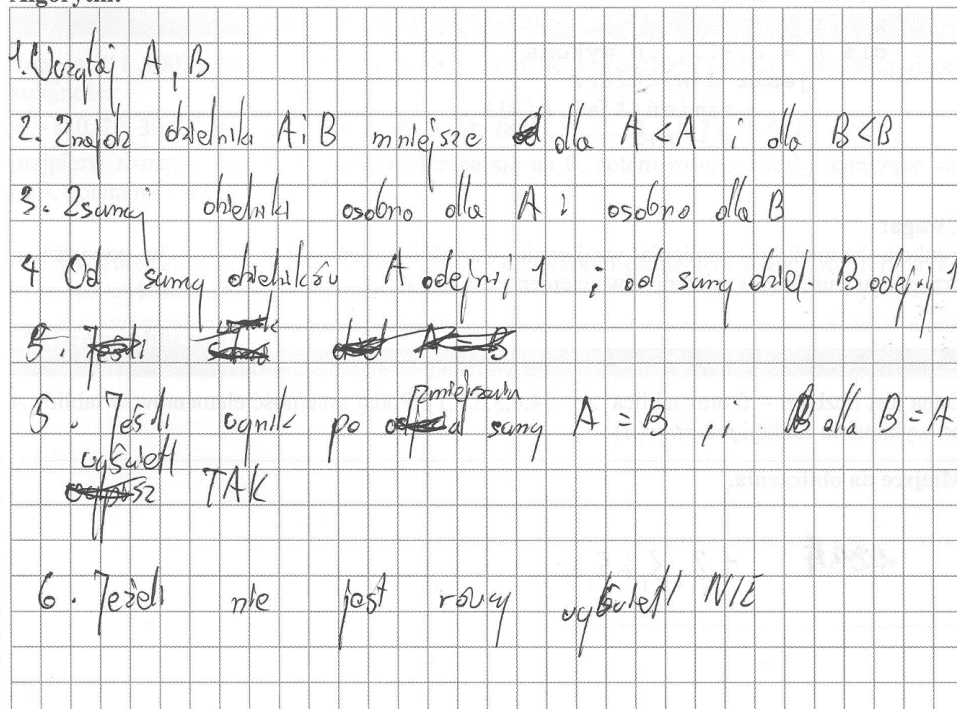 Algorytm:
1. Wczytaj A, B
2. Znajdz dzielniki A i B mniejsze dla A<A i dla B<B
3. Zsumuj dzielniki osobno dla A i osobno dla B
4 Od sumy dzielników A odejmij 1 i od sumy dziel. B odejmij 1
5. Jeśli wynik A=B
zmiejszeniu
5. Jeśli wynik po sumy A = B , i B dla B = A
wyświetl
TAK
6. Jeżeli nie jest równy wyświetl NIE